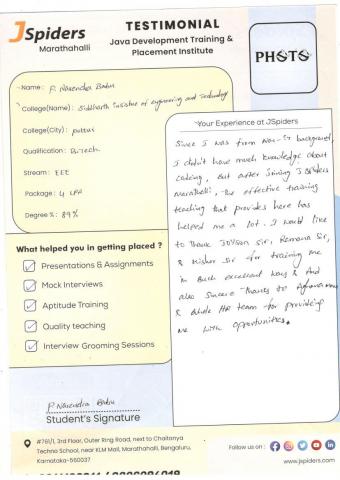 JSpiders
Marathahalli
TESTIMONIAL
Java Development Training &
Placement Institute
PHOTO
Name: P. Narendra Babu
College(Name): Siddharth Institute of engineering and Technology
College(City): puttur
Qualification: B-Tech
Stream: EEE
Package: 4 LPA
Degree %: 89%
What helped you in getting placed ?
Presentations & Assignments
Mock Interviews
Aptitude Training
Quality teaching
Interview Grooming Sessions
Your Experience at JSpiders
Since I was from Non-IT background,
I didn't have much knowledge about
coding, But after joining J Spiders
Marathalli, the effective training,
teaching that provides here has
helped me a lot. I would like
to thank sir, Ramana Sir,
& Kishor Sir for training me
in Such excellent way & And
also Sincere thanks to
& whole HR team for providing
me with opportunities.
P. Narendra Babu
Student's Signature
#761/1, 3rd Floor, Outer Ring Road, next to Chaitanya
Techno School, near KLM Mall, Marathahalli, Bengaluru,
Karnataka-560037
Follow us on :
www.jspiders.com